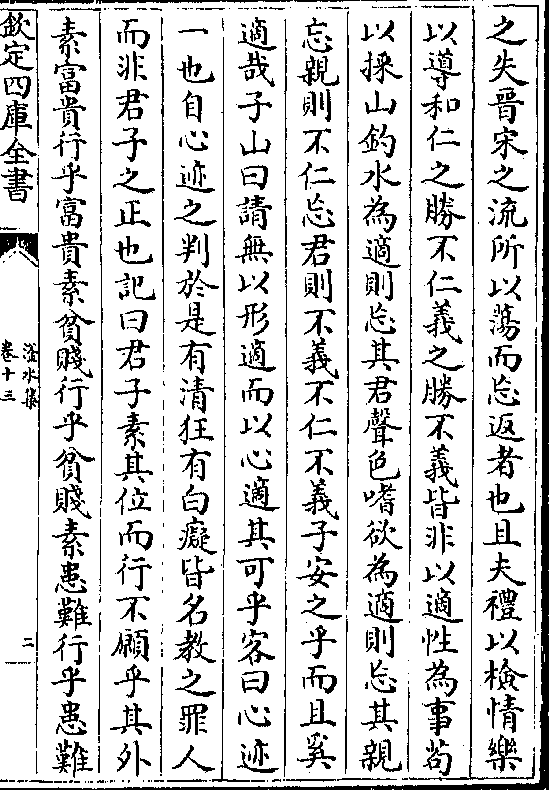 之失晉宋之流所以蕩而忘返者也且夫禮以檢情樂
以導和仁之勝不仁義之勝不義皆非以適性為事苟
以採山釣水為適則忘其君聲色嗜欲為適則忘其親
忘親則不仁忘君則不義不仁不義子安之乎而且奚
適哉子山曰請無以形適而以心適其可乎客曰心迹
一也自心迹之判於是有清狂有白癡皆名教之罪人
而非君子之正也記曰君子素其位而行不願乎其外
素富貴行乎富貴素貧賤行乎貧賤素患難行乎患難
欽定四庫全書
滏水集
卷十三
二